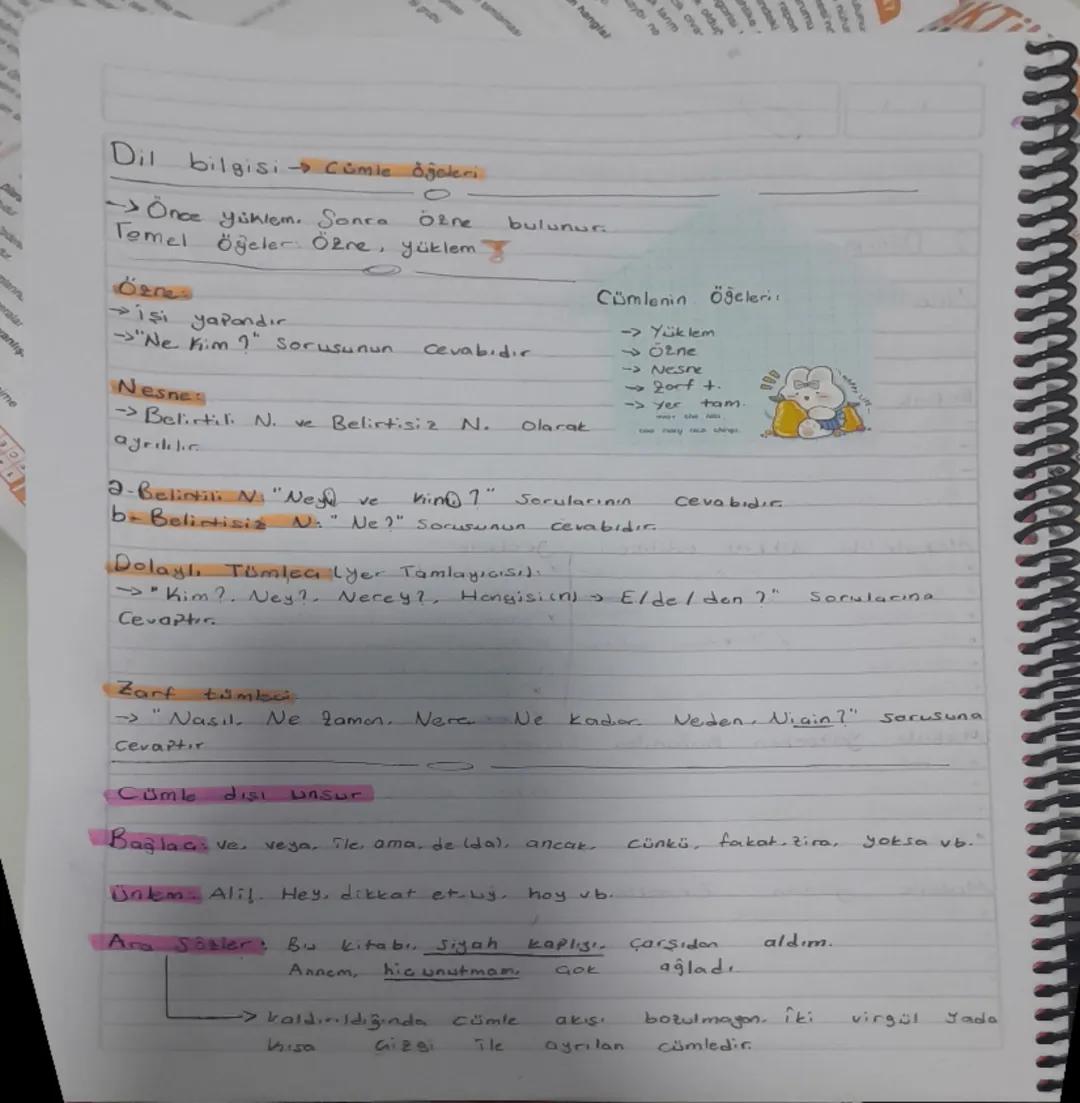 Dil bilgisi → Cümle öğeleri
--> Önce yüklem. Sonra özne bulunur.
Temel öğeler: Özne, yüklem
Özne:
→ işi yapandır
->"Ne Kim ?" Sorusunun cevabıdır
Nesne:
-> Belirtili N. ve Belirtisiz N. Olarak
ayrılılır.
Cümlenin Öğeleri:
-> Yüklem
-> Özne
-> Nesne
-> Zarf t.
-> Yer tam.
a-Belirtili N: "Neyi ve Kimi ?" Sorularının cevabıdır.
b- Belirtisiz N: "Ne?" Sorusunun cevabıdır.
Dolaylı Tümleci (Yer Tamlayıcısı):
-> "Kim?, Ney?, Nerey?, Hangisi(n) → E/de/den ?" Sorularına
Cevaptır.
Zarf tümleci
-> "Nasıl, Ne zaman, Nere Ne kadar Neden, Niçin?" sorusuna
Cevaptır
Cümle dışı unsur
Bağlaç: ve, veya, ile, ama, de (da), ancak, Çünkü, fakat, zira, yoksa vb."
Ünlem: Ali!, Hey, dikkat et, uy, hoy vb.
Ara Sözler: Bu kitabı, siyah kaplıyı, çarşıdan aldım.
Annem, hiç unutmam, çok ağladı.
-> kaldırıldığında cümle akışı bozulmayan, iki virgül yada
kısa çizgi ile ayrılan cümledir.